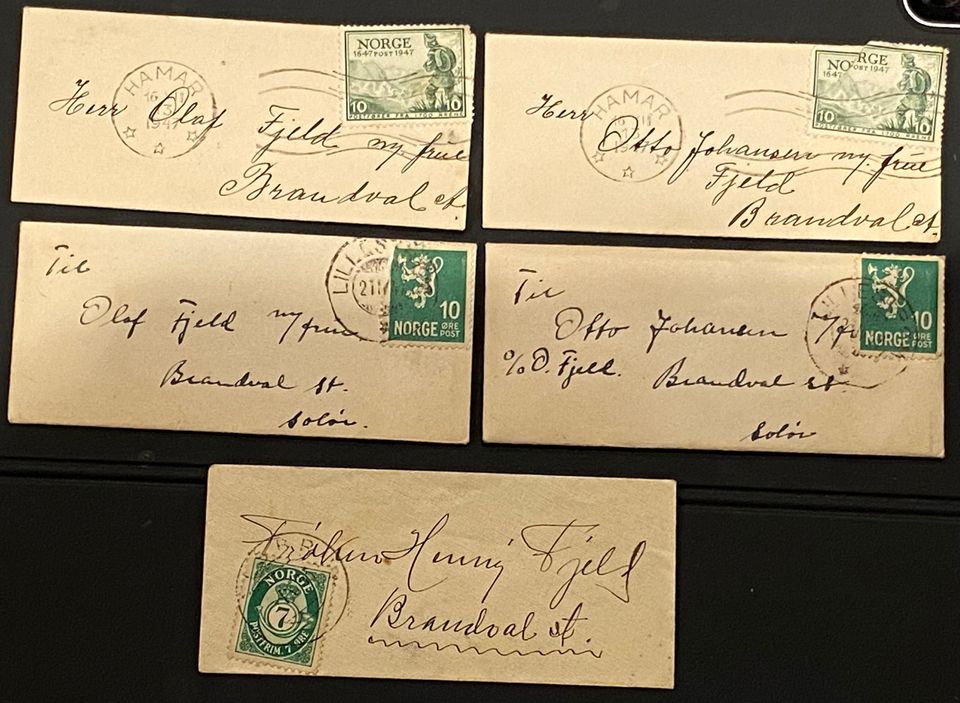 HAMAR
1947
NORGE
1647 POST 1947
10 10
POSTFØRER FRA 1700 ÅRENE
Herr Olaf Fjeld m/frue
Brandval st.
HAMAR
NORGE
1647 POST 1947
10 10
POSTFØRER FRA 1700 ÅRENE
Herr Otto Johansen m/frue
Fjeld
Brandval st.
10
NORGE ØRE POST
Til
Olaf Fjeld m/frue
Brandval st.
Solør.
10
NORGE ØRE POST
Til
Otto Johansen m/f
c/o O. Fjeld.
Brandval st.
Solør
NORGE
7
POSTFRIM. 7 ØRE
Frøken Henny Fjeld
Brandval st.